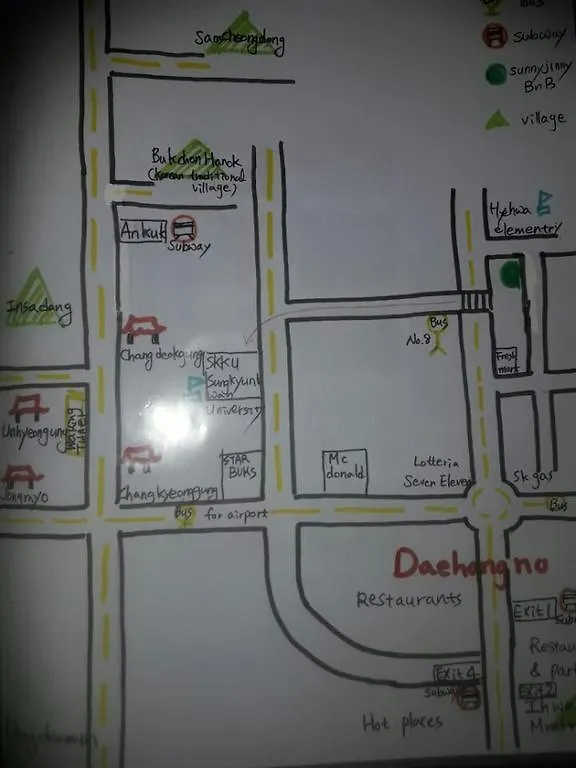 Bus
subway
sunnyjinny
BnB
village
Samcheongdong
Bukchon Hanok
(korean traditional
village)
Ankuk
Subway
Hyehwa
elementry
Insadang
Changdeokgung
SKKU
Sungkyunk
wan
University
Bus
No.8
Fresh
mart
Unhyeongung
Walking
tunnel
Jongmyo
Changkyeongung
STAR
BUKS
Mc
donald
Lotteria
Seven Eleven
Sk gas
Bus
for airport
Bus
Daehangno
Restaurants
Exit 1
Sub
Restau
& par
Exit 4
Subway
Exit 2
Ihwa
Hot places